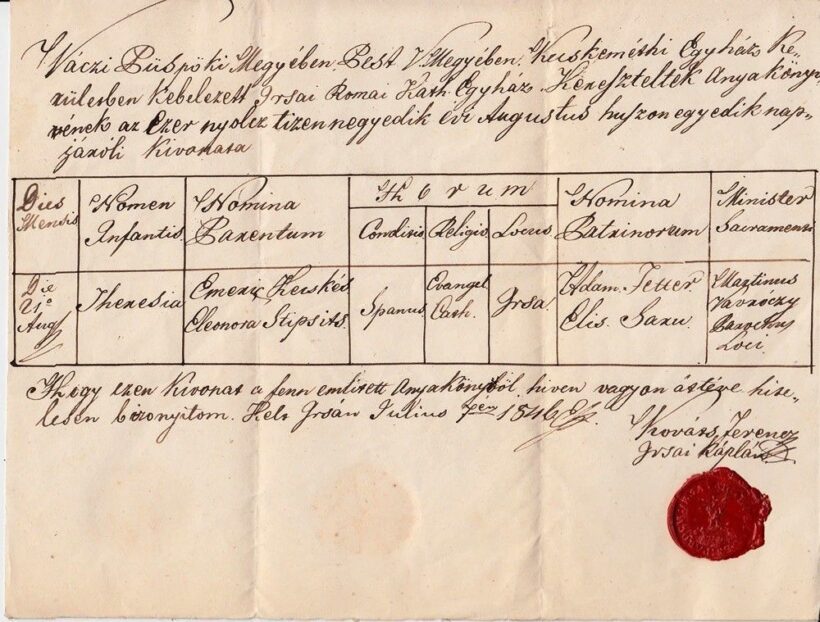 Váczi Püspöki Megyében Pest V. Megyében, Kecskeméthi Egyház Ke-
rületben kebelezett Irsai Romai Kath. Egyház Kereszteltek Anyaköny-
vének az Ezer nyolcz tizennegyedik évi Augustus huszonegyedik nap-
járóli kivonata
Dies Mensis
Nomen Infantis
Nomina Parentum
Horum
Conditio
Religio
Locus
Nomina Patrinorum
Minister Sacramenti
Die 21ª Aug
Theresia
Emeric Kecskés
Eleonora Stipsits
Spanus
Evangel
Cath.
Irsa
Adam Feuer
Elis.
Martinus
Parochus
Loci
Hogy ezen kivonat a fenn emlitett anyakönyből hiven vagyon áttéve hite-
lesen bizonyitom. Kelt Irsán Julius 1846
Kováts Ferencz
Irsai Káplán